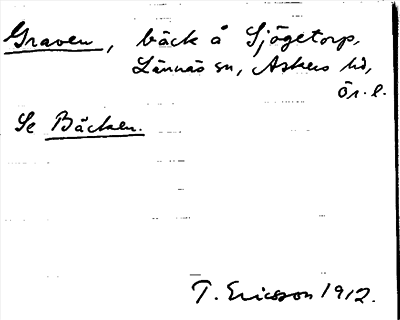 Graven, bäck å Sjögetorp,
Lännäs sn, Askers hd,
ör. l.
Se Bäcken.
T. Ericsson 1912.